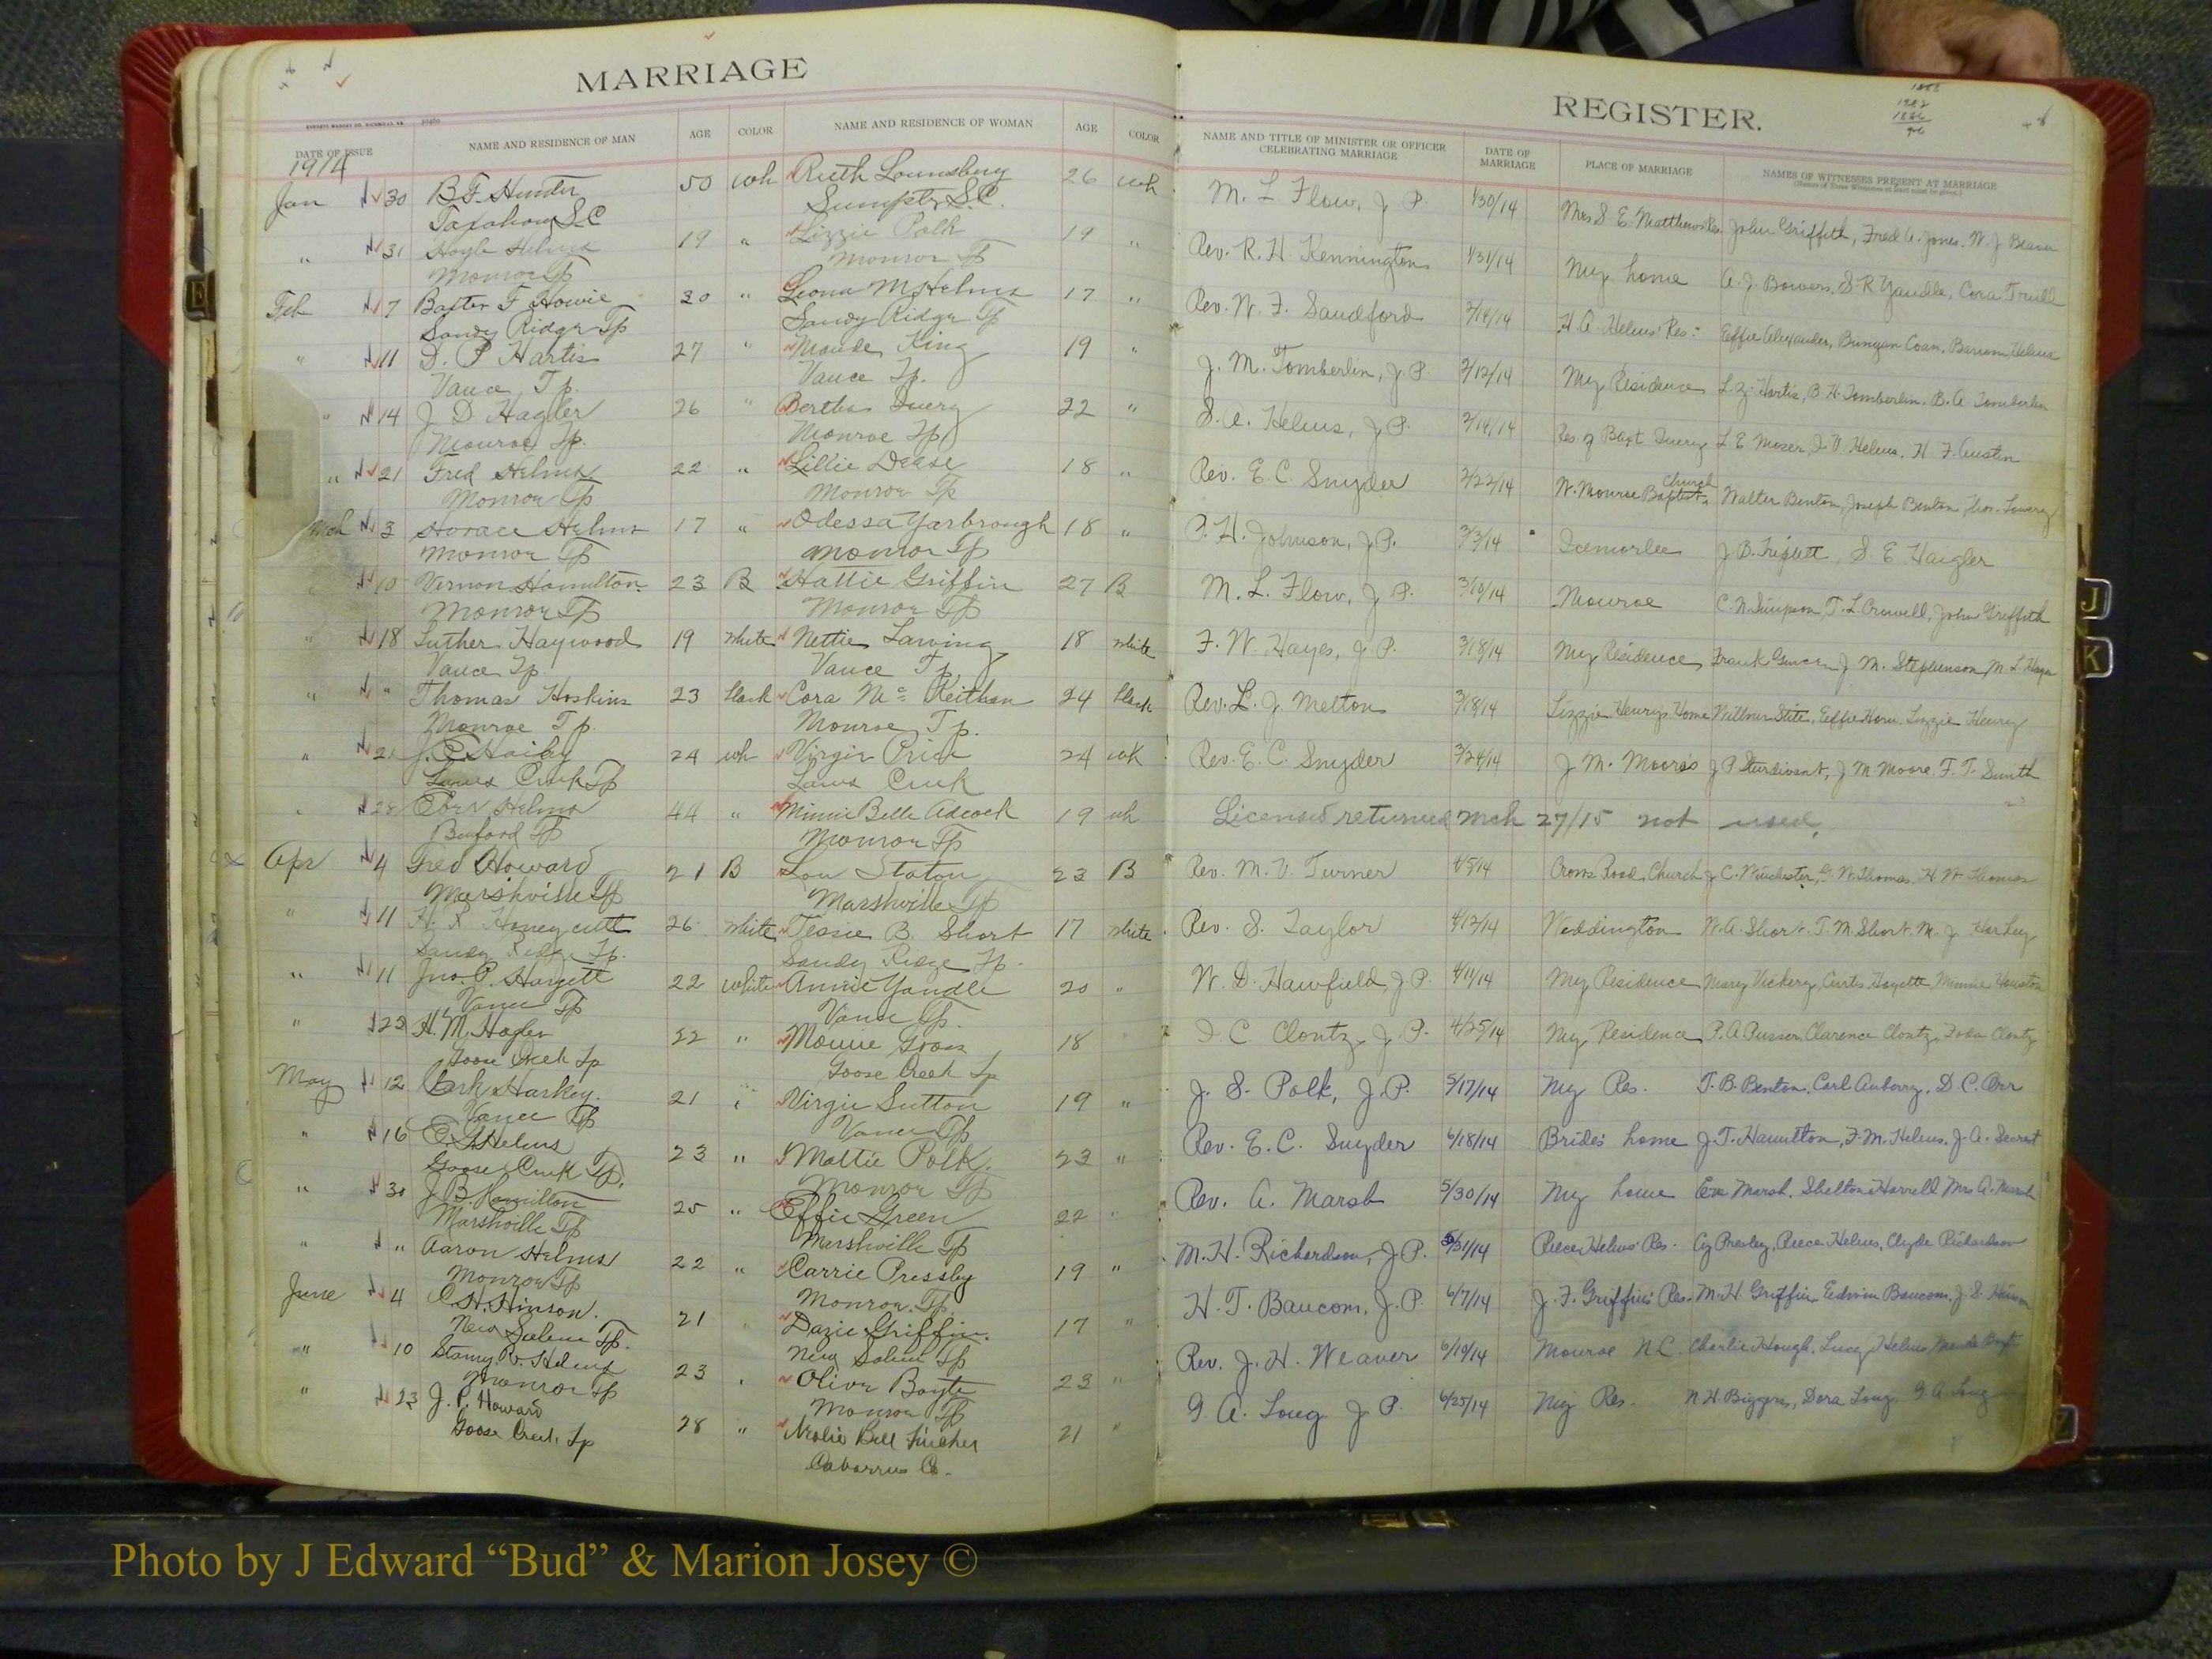 MARRIAGE
DATE OF ISSUE NAME AND RESIDENCE OF MAN AGE COLOR NAME AND RESIDENCE OF WOMAN AGE COLOR
1914
Jan 30 B.F. Hunter 50 wh Ruth Lounsbery 26 wh
Taxahow S.C Sumpter S.C.
" 31 Hoyle Helms 19 " Lizzie Polk 19 "
Monroe Tp Monroe Tp
Feb 7 Baxter F Howie 30 " Leona M Helms 17 "
Sandy Ridge Tp Sandy Ridge Tp
" 11 D. P Hartis 27 " Maude King 19 "
Vance Tp. Vance Tp.
" 14 J D Hagler 26 " Bertha Query 22 "
Monroe Tp. Monroe Tp
" 21 Fred Helms 22 " Lillie Dease 18 "
Monroe Tp Monroe Tp
Mch 3 Horace Helms 17 " Odessa Yarbrough 18 "
Monroe Tp Monroe Tp
" 10 Vernon Hamilton 23 B Hattie Griffin 27 B
Monroe Tp Monroe Tp
" 18 Luther Haywood 19 white Nettie Larving 18 white
Vance Tp Vance Tp
" " Thomas Hoskins 23 black Cora Mc Keithan 24 black
Monroe Tp. Monroe Tp.
" 21 J. C. Haily 24 wh Virgie Price 24 wh
Lanes Creek Tp Lanes Creek
" 28 Eber Helms 44 " Minnie Belle Adcock 19 wh
Buford Tp Monroe Tp
Apr 4 Fred Howard 21 B Lou Staton 23 B
Marshville Tp Marshville Tp
" 11 H. R Honeycutt 26 white Tessie B. Short 17 white
Sandy Ridge Tp. Sandy Ridge Tp.
" 11 Jno. P. Hargett 22 white Annie Yandle 20 "
Vance Tp Vance Tp.
" 25 H. M. Hagler 22 " Monie 18
Goose Creek Tp Goose Creek Tp
May 12 Harkey. 21 Virgie Sutton 19 "
Vance Tp Vance Tp
" 16 Helms 23 " Mattie Polk. 23 "
Goose Creek Tp. Monroe Tp
" 30 J B. Hamilton 25 " Effie Green 22 "
Marshville Tp Marshville Tp
" " Aaron Helms 22 " Carrie Pressley 19 "
Monroe Tp Monroe Tp.
June 4 C. H. Hinson. 21 Dazie Griffin. 17 "
New Salem Tp. New Salem Tp
" 10 R. Helms 23 Oliver Boyte 23 "
Monroe Tp Monroe Tp
" 23 J. P. Howard 28 " Bell Fincher 21 "
Goose Creek Tp Cabarrus Co.
REGISTER.
NAME AND TITLE OF MINISTER OR OFFICER CELEBRATING MARRIAGE DATE OF MARRIAGE PLACE OF MARRIAGE NAMES OF WITNESSES PRESENT AT MARRIAGE
(Names of Three Witnesses at least must be given.)
M. L. Flow, J P. 1/30/14 Mrs S. E. Matthews Res. John Griffith, Fred A. Jones, W. J Beaver
Rev. R. H. Kennington 1/31/14 My home A. J Bowers, S-R Yandle, Cora Trull
Rev. W. F. Sandford 2/14/14 H A. Helms' Res: Effie Alexander, Bunyan Coan, Barium Helms
J. M. Tomberlin, J P. 2/12/14 My Residence L. Z. Hartis, B H. Tomberlin, B. A Tomberlin
S. A. Helms, J P. 2/14/14 Res. of Baxt Query L E Moser, Helms, H F. Austin
Rev. E. C. Snyder 2/22/14 W. Monroe Baptist Church Walter Benton, Joseph Benton, Thos. Lowery
P. H. Johnson, J. P. 3/3/14 Icemorlee J. B. Triplett, S. E Haigler
M. L. Flow, J P. 3/10/14 Monroe C. N. Simpson, T. L. Crowell, John Griffith
F. W. Hayes, J. P. 3/18/14 My Residence Frank J M. Stephenson, M L Hayes
Rev. L. J Melton 3/18/14 Lizzie Henry's Home Stitt, Effie Horn, Lizzie Henry
Rev. E. C. Snyder 3/24/14 J M. Moore's J P Sturdivant, J M Moore, F. T. Smith
License returned Mch 27/15 not used.
Rev. M. V. Turner 4/5/14 Cross Road Church J C. Winchester, W. Thomas, H. W Thomas
Rev. S. Taylor 4/12/14 Weddington W. A. Short, T. M. Short, M. J Harkey
W. D. Hawfield, J P. 4/11/14 My Residence Mary Vickery, Curtis Hargette, Minnie Houston
I. C. Clontz, J. P. 4/25/14 My Residence P. A. Pusser, Clarence Clontz, Clontz
J. S. Polk, J. P. 5/17/14 My Res. T. B. Benton, Carl Auberry, D. C. Orr
Rev. E. C. Snyder 6/18/14 Brides home J. T. Hamilton, F. M. Helms, J. A. Secrest
Rev. A. Marsh 5/30/14 My home Eva Marsh, Shelton Harrell Mrs A. Marsh
M. H. Richardson, J. P. 5/31/14 Reece Helms' Res. Cy Presley, Reece Helms, Clyde Richardson
H. T. Baucom, J. P. 6/7/14 J. F. Griffin's Res. M. H. Griffin, Edwin Baucom, J. S. Hinson
Rev. J. H. Weaver 6/10/14 Monroe N.C. Charlie Hough, Lucy Helms, Maude
G. A. Long J P. 6/25/14 My Res. N. H. Biggers, Dora Long, G A. Long
J
K
Photo by J Edward “Bud” & Marion Josey ©